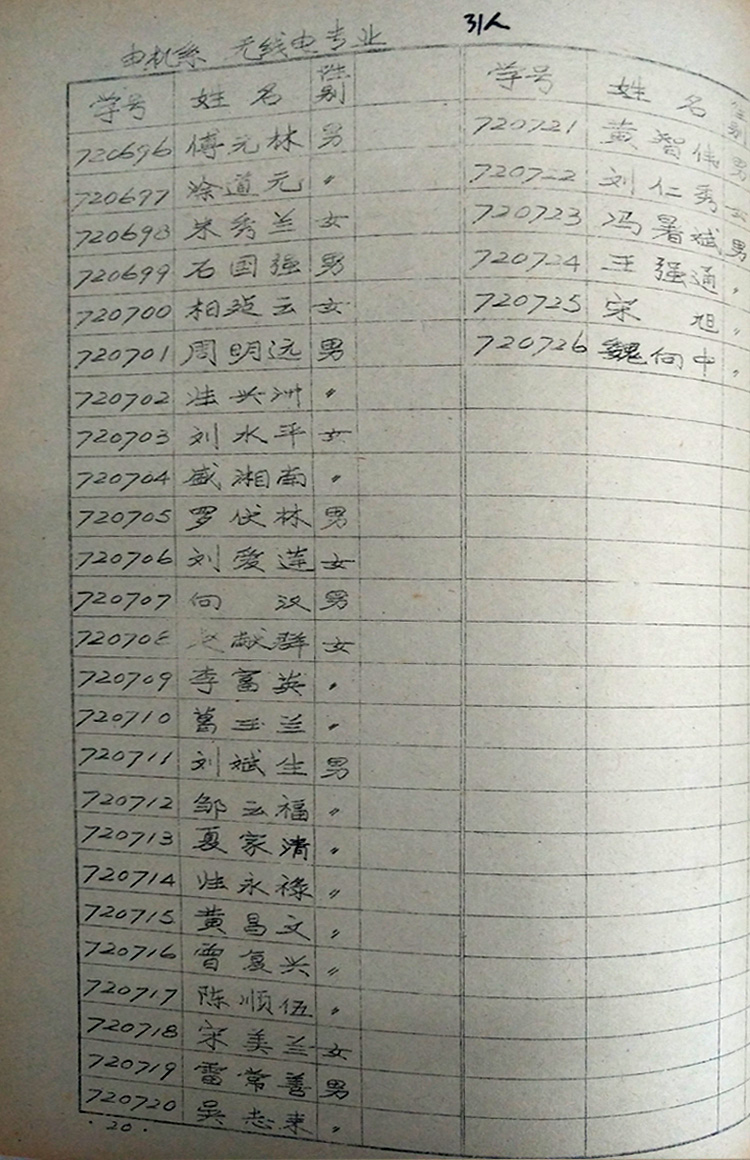 电机系 无线电专业 31人
学号 姓名 性别
720696 傅元林 男
720697 涂道元 〃
720698 朱秀兰 女
720699 石国强 男
720700 柏 云 女
720701 周明远 男
720702 兴洲 〃
720703 刘水平 女
720704 盛湘南 〃
720705 罗伏林 男
720706 刘爱莲 女
720707 向 汉 男
720708 赵献群 女
720709 李富英 〃
720710 葛玉兰 〃
720711 刘斌生 男
720712 邹云福 〃
720713 夏家清 〃
720714 永禄 〃
720715 黄昌文 〃
720716 曾复兴 〃
720717 陈顺伍 〃
720718 宋美兰 女
720719 雷常善 男
720720 吴志来 〃
·20·
学号 姓名 性别
720721 黄智伟 男
720722 刘仁秀 女
720723 冯暑斌 男
720724 王强通 〃
720725 宋 旭 〃
720726 魏向中 〃